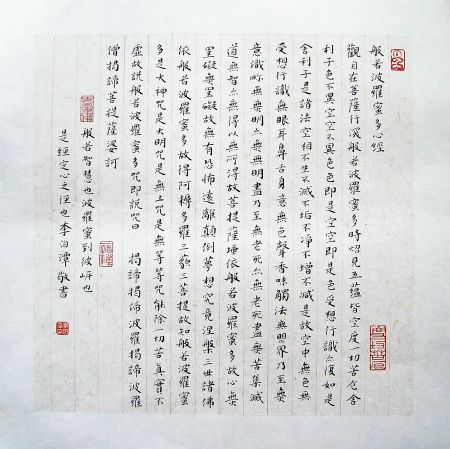 般若波羅蜜多心經
觀自在菩薩行深般若波羅蜜多時炤見五蘊皆空度一切苦厄舍
利子色不異空空不異色色即是空空即是色受想行識亦復如是
舍利子是諸法空相不生不滅不垢不淨不增不減是故空中無色無
受想行識無眼耳鼻舌身意無色聲香味觸法無眼界乃至無
意識界無無明亦無無明盡乃至無老死亦無老死盡無苦集滅
道無智亦無得以無所得故菩提薩埵依般若波羅蜜多故心無
罣礙無罣礙故無有恐怖遠離顛倒夢想究竟涅槃三世諸佛
依般若波羅蜜多故得阿耨多羅三藐三菩提故知般若波羅蜜
多是大神咒是大明咒是無上咒是無等等咒能除一切苦真實不
虛故說般若波羅蜜多咒即說咒曰 揭諦揭諦波羅揭諦波羅
僧揭諦菩提薩婆訶
般若智慧也波羅蜜到彼岍也
是經定心之徑也李泊潭敬書